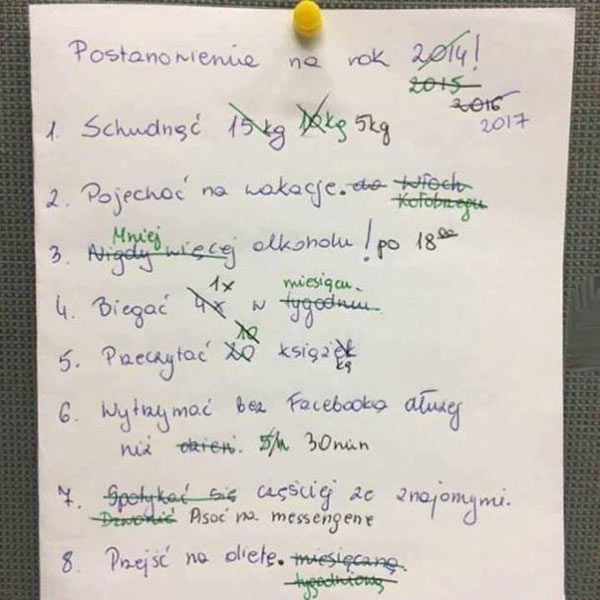 Postanowienie na rok 2014!
2015
2016
2017
1. Schudnąć 15 kg 10 kg 5kg
2. Pojechać na wakacje. do Włoch
Kołobrzegu
Mniej
3. Nigdy więcej alkoholu! po 18⁰⁰
1x miesiącu.
4. Biegać 4x w tygodniu.
10
5. Przeczytać 20 książek
kę
6. Wytrzymać bez Facebooka dłużej
niż dzień. 5h 30min
7. Spotykać się częściej ze znajomymi.
Dzwonić Pisać na messengerze
8. Przejść na dietę. miesięczną.
tygodniową